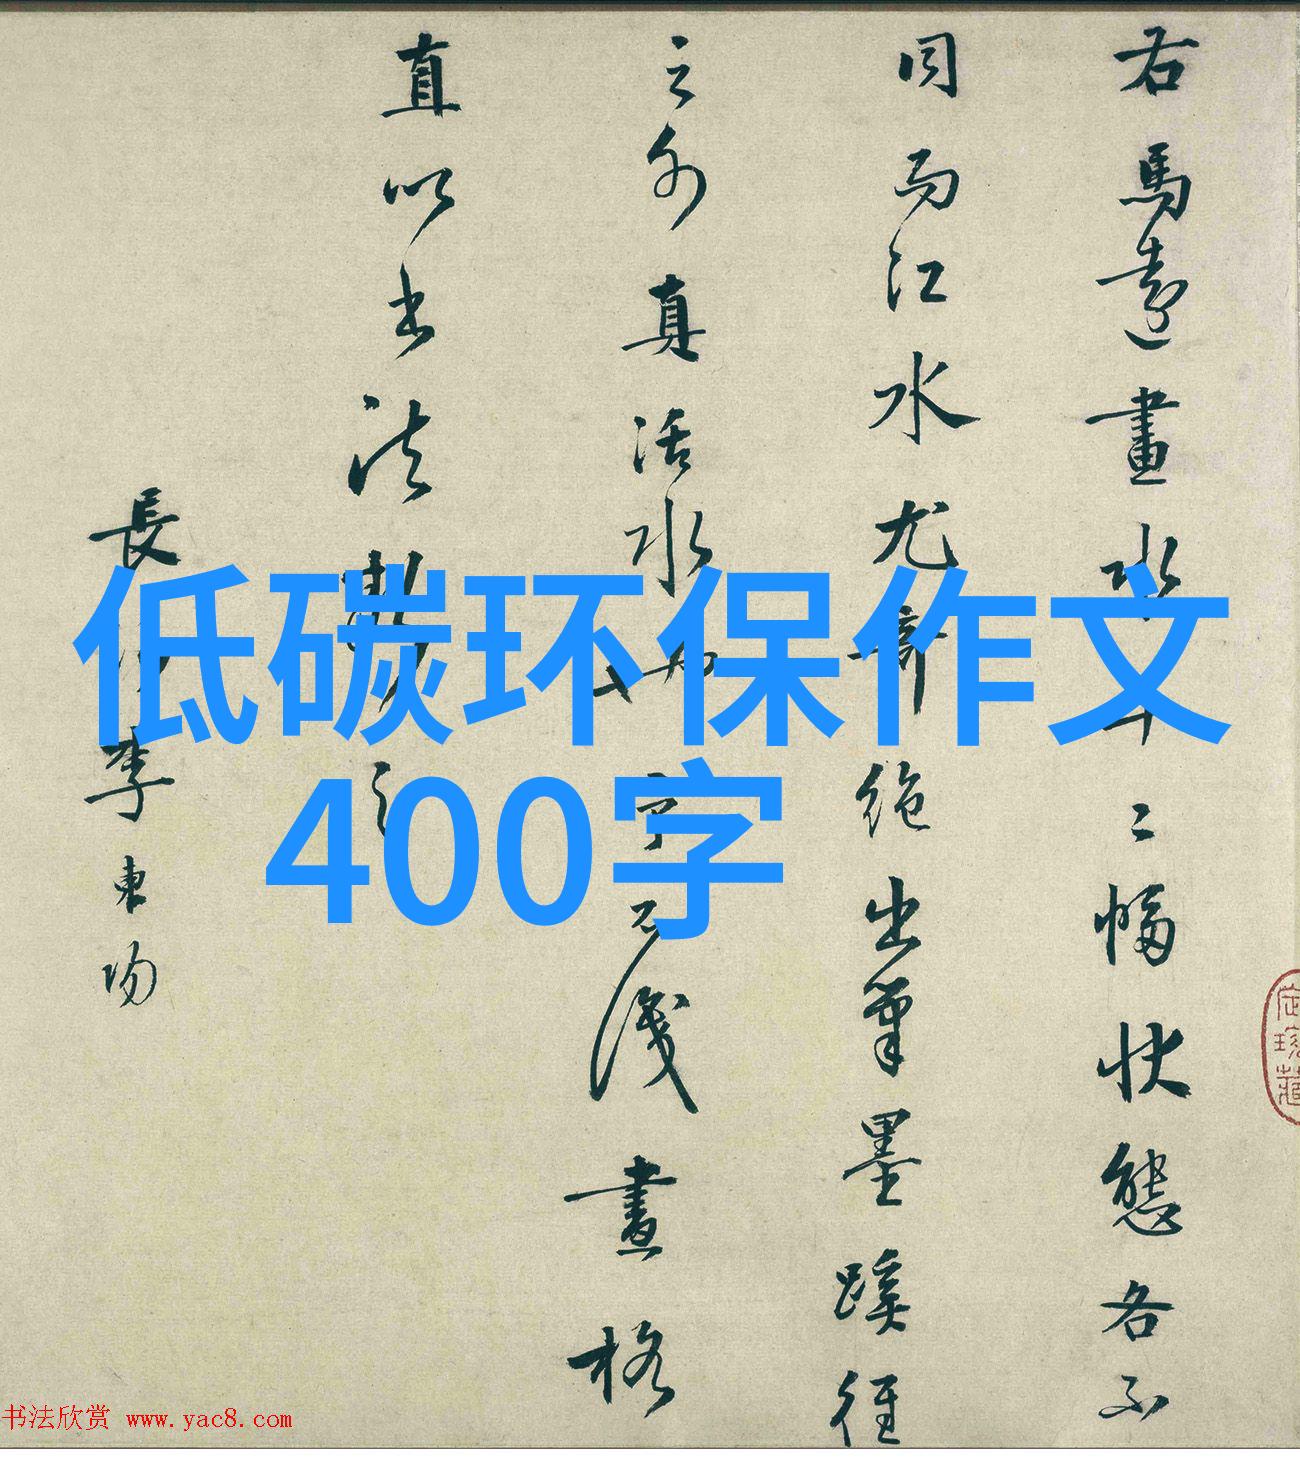 右馬遠畫水十二幅状態各不
同而江水尤奇絶出筆墨蹊徑
之外真活水也予不識畫格
直以书法觀之
長沙李東陽
低碳环保作文
400字
书法欣赏 www.yac8.com